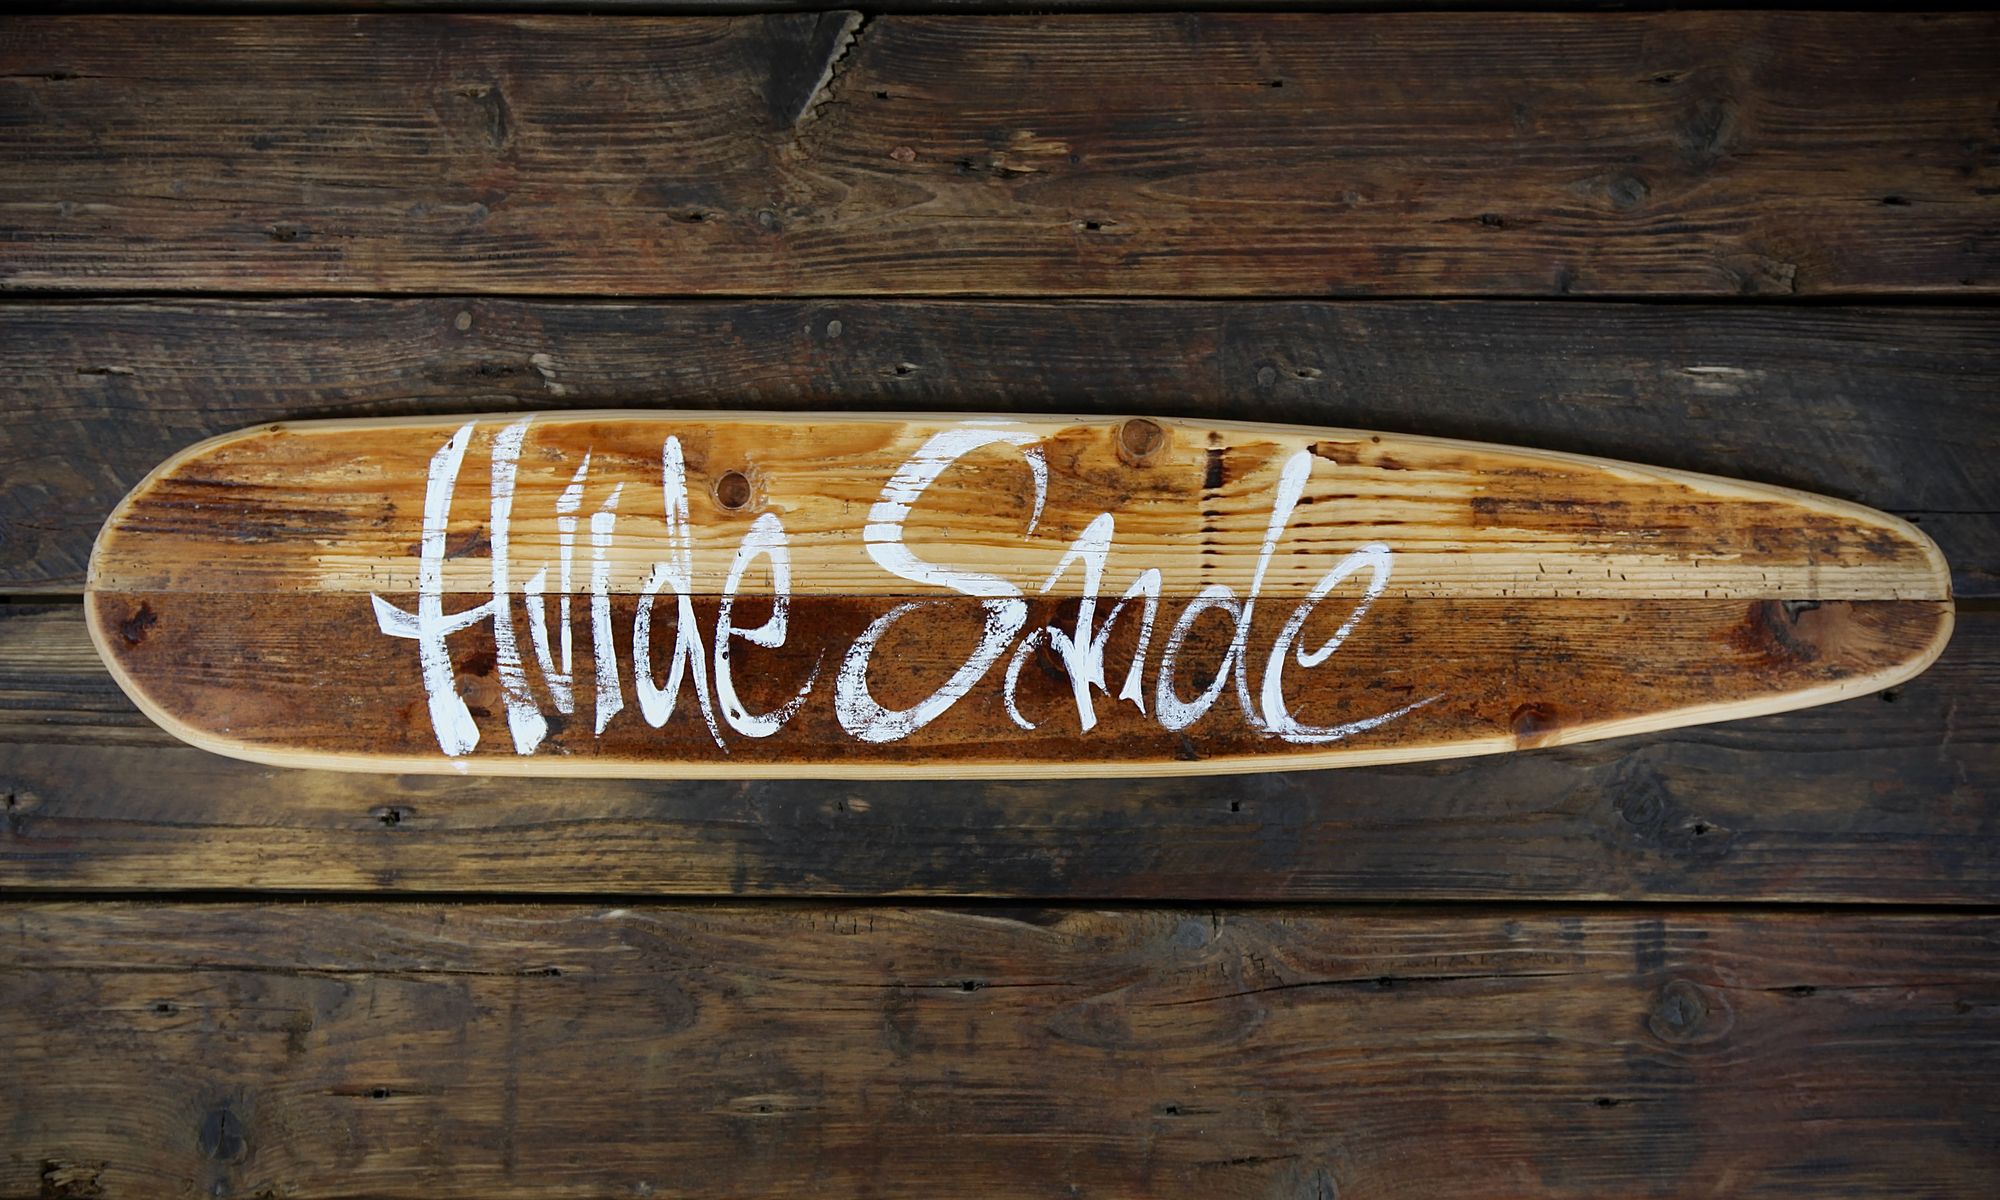 Hvide Sande